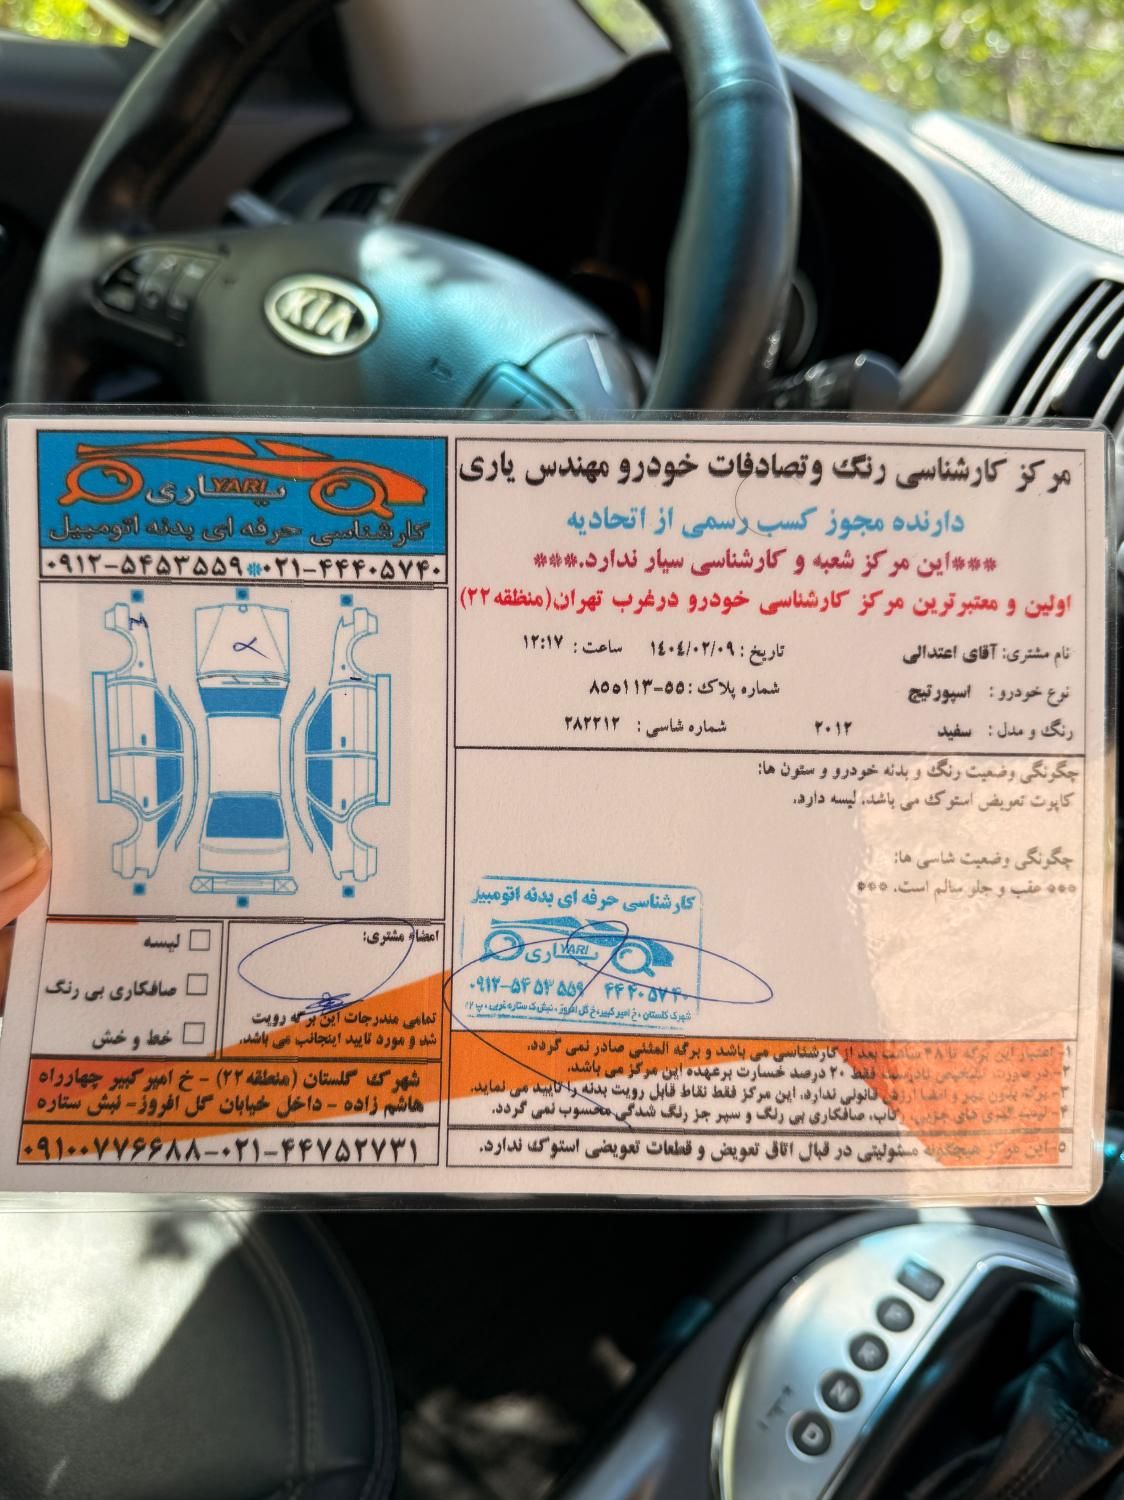 KIA
یاری
YARI
کارشناسی حرفه ای بدنه اتومبیل
۰۹۱۲-۵۴۵۳۵۵۹*۰۲۱-۴۴۴۰۵۷۴۰
مرکز کارشناسی رنگ وتصادفات خودرو مهندس یاری
دارنده مجوز کسب رسمی از اتحادیه
***این مرکز شعبه و کارشناسی سیار ندارد.***
اولین و معتبرترین مرکز کارشناسی خودرو درغرب تهران(منطقه ۲۲)
نام مشتری: آقای اعتدالی
تاریخ : ۱۴۰۴/۰۲/۰۹ ساعت : ۱۲:۱۷
نوع خودرو : اسپورتیج
شماره پلاک :۵۵-۸۵۵۱۱۳
رنگ و مدل : سفید ۲۰۱۲
شماره شاسی : ۲۸۲۲۱۲
چگونگی وضعیت رنگ و بدنه خودرو و ستون ها:
کاپوت تعویض استوک می باشد. لیسه دارد.
چگونگی وضعیت شاسی ها:
*** عقب و جلو سالم است. ***
کارشناسی حرفه ای بدنه اتومبیل
یاری
YARI
۰۹۱۲-۵۴۵۳۵۵۹ ۴۴۴۰۵۷۴۰
شهرک گلستان، خ امیرکبیر، خ گل افروز، نبش ک ستاره غربی، پ
لیسه
صافکاری بی رنگ
خط و خش
امضاء مشتری:
تمامی مندرجات این برگه رویت
شد و مورد تایید اینجانب می باشد.
۱- اعتبار این برگه تا ۴۸ ساعت بعد از کارشناسی می باشد و برگه المثنی صادر نمی گردد.
۲- در صورت تشخیص نادرست فقط ۲۰ درصد خسارت برعهده این مرکز می باشد.
۳- برگه بدون مهر و امضا ارزش قانونی ندارد. این مرکز فقط نقاط قابل رویت بدنه را تایید می نماید.
۴- لیسه گیری های جزیی، رکاب، صافکاری بی رنگ و سپر جز رنگ شدگی محسوب نمی گردد.
۵- این مرکز هیچگونه مسئولیتی در قبال اتاق تعویض و قطعات تعویضی استوک ندارد.
شهرک گلستان (منطقه ۲۲) - خ امیر کبیر چهارراه
هاشم زاده - داخل خیابان گل افروز- نبش ستاره
۰۹۱۰۰۷۷۶۶۸۸-۰۲۱-۴۴۷۵۲۷۳۱
P
R
N
D